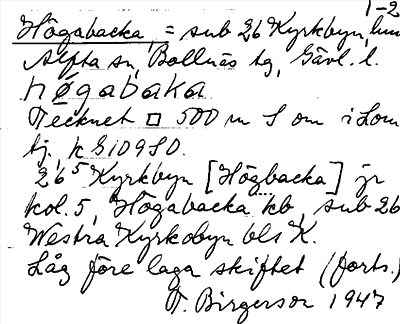 1-2
Högabacka, = sub 26 Kyrkbyn,
Alfta sn, Bollnäs tg, Gävl. l.
høgabaka
Tecknet □ 500 m S om i Lom
tj. k G109SO.
26⁵ Kyrkbyn [Högbacka] jr
kol. 5, Högabacka kb, sub 26
Westra Kyrkobyn bls K.
Låg före laga skiftet (forts.)
T. Birgerson 1947